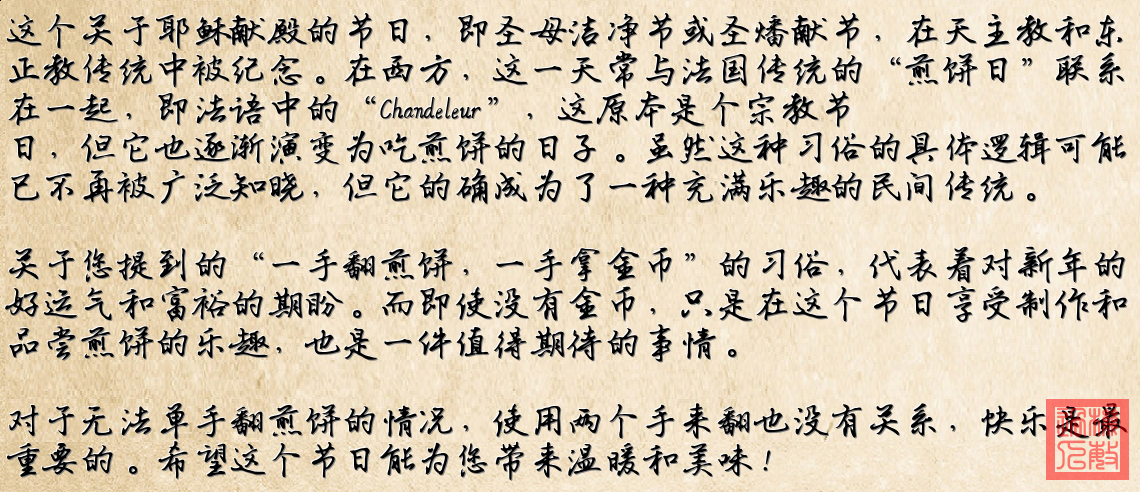 这个关于耶稣献殿的节日，即圣母洁净节或圣燔献节，在天主教和东
正教传统中被纪念。在西方，这一天常与法国传统的“煎饼日”联系
在一起，即法语中的“Chandeleur”，这原本是个宗教节
日，但它也逐渐演变为吃煎饼的日子。虽然这种习俗的具体逻辑可能
已不再被广泛知晓，但它的确成为了一种充满乐趣的民间传统。
关于您提到的“一手翻煎饼，一手拿金币”的习俗，代表着对新年的
好运气和富裕的期盼。而即使没有金币，只是在这个节日享受制作和
品尝煎饼的乐趣，也是一件值得期待的事情。
对于无法单手翻煎饼的情况，使用两个手来翻也没有关系，快乐是最
重要的。希望这个节日能为您带来温暖和美味！